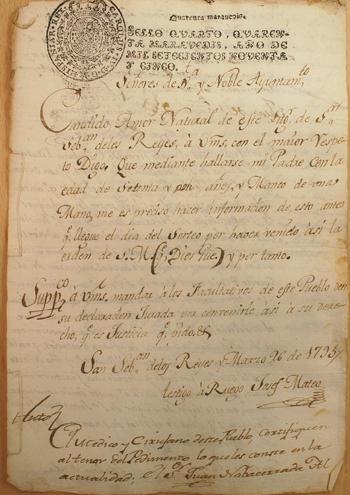 Quarenta maravedis.
SELLO QVARTO, QVAREN-
TA MARAVEDIS, AÑO DE
MIL SETECIENTOS NOVENTA
Y CINCO.
Señores de Jª. y Noble Ayuntamto
Candido Amer Natural de este Lug. de Sn
Seban. delos Reyes, à Vms. con el maior Respe-
to Digo, Que mediante hallarse mi Padre con la
edad de Setenta y un años, y Manco de una
Mano, me es preciso hacer informacion de esto antes
q. llegue el dia del Sorteo por haver venido asi la
orden de S. M. (q. Dios gue) y por tanto.
Suppco. à Vms. mandar à los Facultativos de este Pueblo den
su declaracion Jurada para convenirle asi à su dere-
cho, q. es Justicia q. pido. &
San Seban. delos Reyes y Marzo 26 de 1795
testigo à Ruego Josef Mateo
Auto
El Medico y Cirujano deste Pueblo, certifiquen
al tenor del Pedimento, lo que les conste en la
actualidad; el Sr. Juan Navacerrada Al